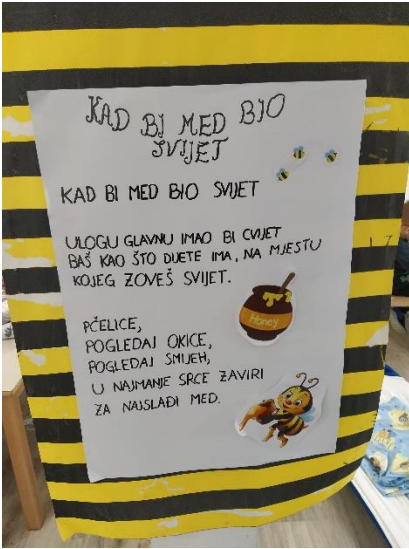 KAD BI MED BIO
SVIJET
KAD BI MED BIO SVIJET
ULOGU GLAVNU IMAO BI CVIJET
BAŠ KAO ŠTO DIJETE IMA, NA MJESTU
KOJEG ZOVEŠ SVIJET.
Honey
PČELICE,
POGLEDAJ OKICE,
POGLEDAJ SMIJEH,
U NAJMANJE SRCE ZAVIRI
ZA NAJSLAĐI MED.